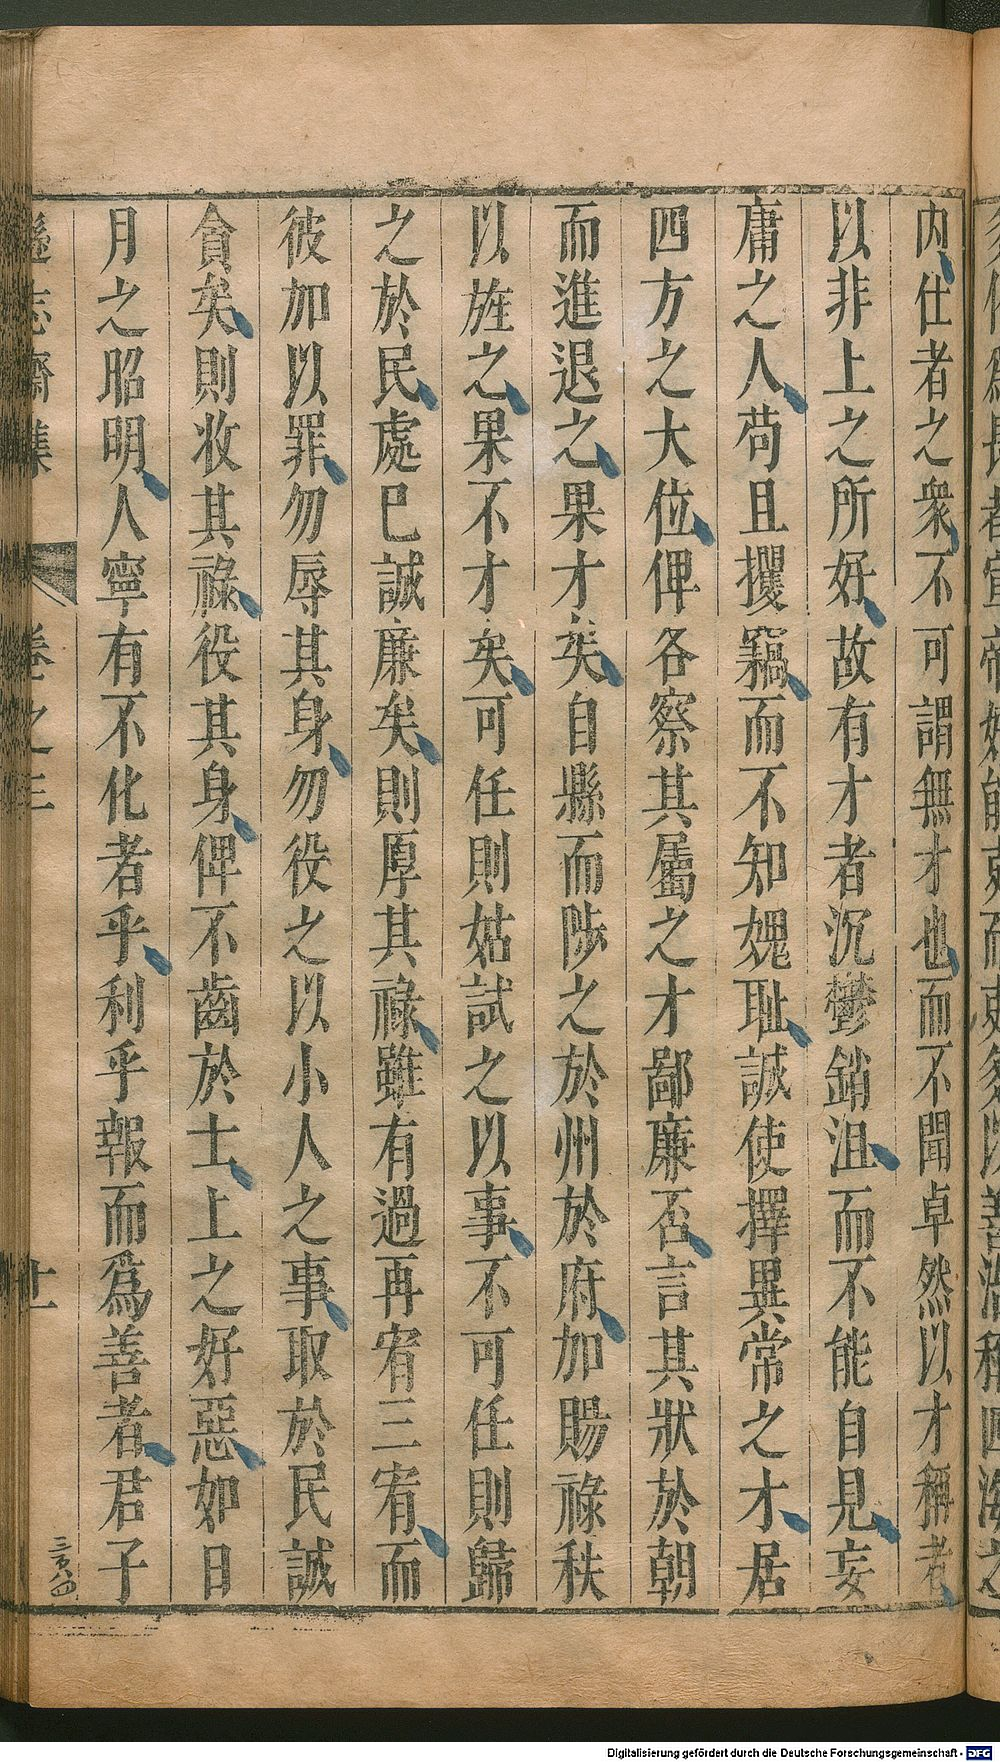 内仕者之衆不可謂無才也而不聞卓然以才稱者
以非上之所好故有才者沉鬱銷沮而不能自見妄
庸之人苟且攫竊而不知媿耻誠使擇異常之才居
四方之大位俾各察其屬之才鄙廉否言其狀於朝
而進退之果才矣自縣而陟之於州於府加賜祿秩
以旌之果不才矣可任則姑試之以事不可任則歸
之於民處已誠廉矣則厚其祿雖有過再宥三宥而
彼加以罪勿辱其身勿役之以小人之事取於民誠
貪矣則收其祿役其身俾不齒於士上之好惡如日
月之昭明人寧有不化者乎利乎報而爲善者君子
遜志齋集
卷之三
Digitalisierung gefördert durch die Deutsche Forschungsgemeinschaft - DFG